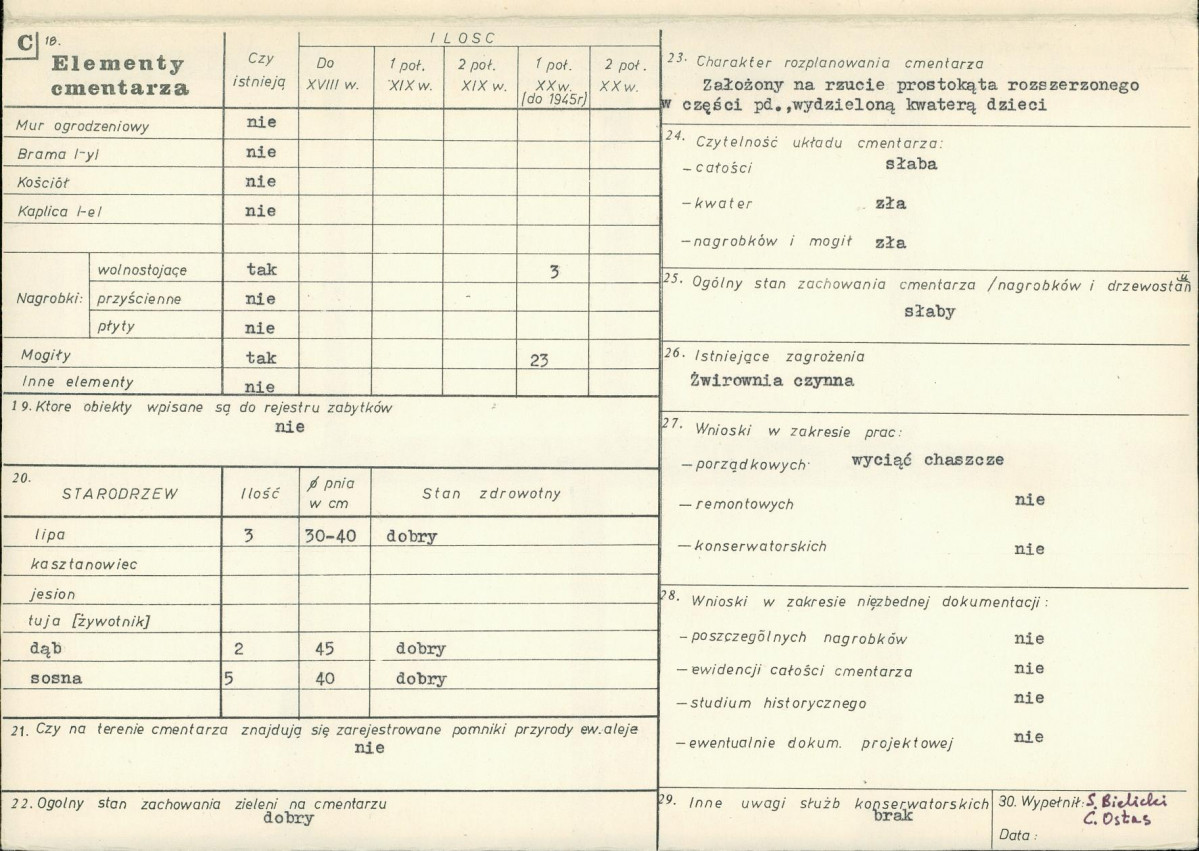 C 18.
Elementy
cmentarza
Czy
istnieją
ILOSC
Do
XVIII w.
1 poł.
XIX w.
2 poł.
XIX w.
1 poł.
XX w.
[do 1945r]
2 poł.
XX w.
Mur ogrodzeniowy nie
Brama /-y/ nie
Kościół nie
Kaplica /-e/ nie
Nagrobki: wolnostojące tak 3
przyścienne nie
płyty nie
Mogiły tak 23
Inne elementy nie
19. Ktore obiekty wpisane są do rejestru zabytków
nie
20. STARODRZEW Ilość ø pnia
w cm Stan zdrowotny
lipa 3 30-40 dobry
kasztanowiec
jesion
tuja [żywotnik]
dąb 2 45 dobry
sosna 5 40 dobry
21. Czy na terenie cmentarza znajdują się zarejestrowane pomniki przyrody ew. aleje
nie
22. Ogolny stan zachowania zieleni na cmentarzu
dobry
23. Charakter rozplanowania cmentarza
Założony na rzucie prostokąta rozszerzonego
w części pd., wydzieloną kwaterą dzieci
24. Czytelność układu cmentarza:
- całości słaba
- kwater zła
- nagrobków i mogił zła
25. Ogólny stan zachowania cmentarza /nagrobków i drzewostan
słaby
26. Istniejące zagrożenia
Żwirownia czynna
27. Wnioski w zakresie prac:
- porządkowych wyciąć chaszcze
- remontowych nie
- konserwatorskich nie
28. Wnioski w zakresie nięzbednej dokumentacji:
- poszczególnych nagrobków nie
- ewidencji całości cmentarza nie
- studium historycznego nie
- ewentualnie dokum. projektowej nie
29. Inne uwagi służb konserwatorskich
brak
30. Wypełnił: S. Bielicki
C. Ostas
Data: